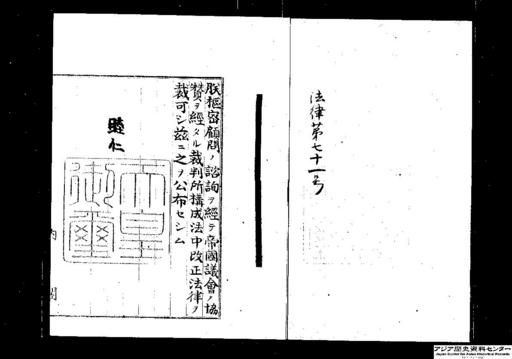 法律第七十一号
朕枢密顧問ノ諮詢ヲ經テ帝國議會ノ協
賛ヲ經タル裁判所構成法中改正法律ヲ
裁可シ茲ニ之ヲ公布セシム
睦仁
天皇御璽
内閣
アジア歴史資料センター
Japan Center for Asian Historical Records